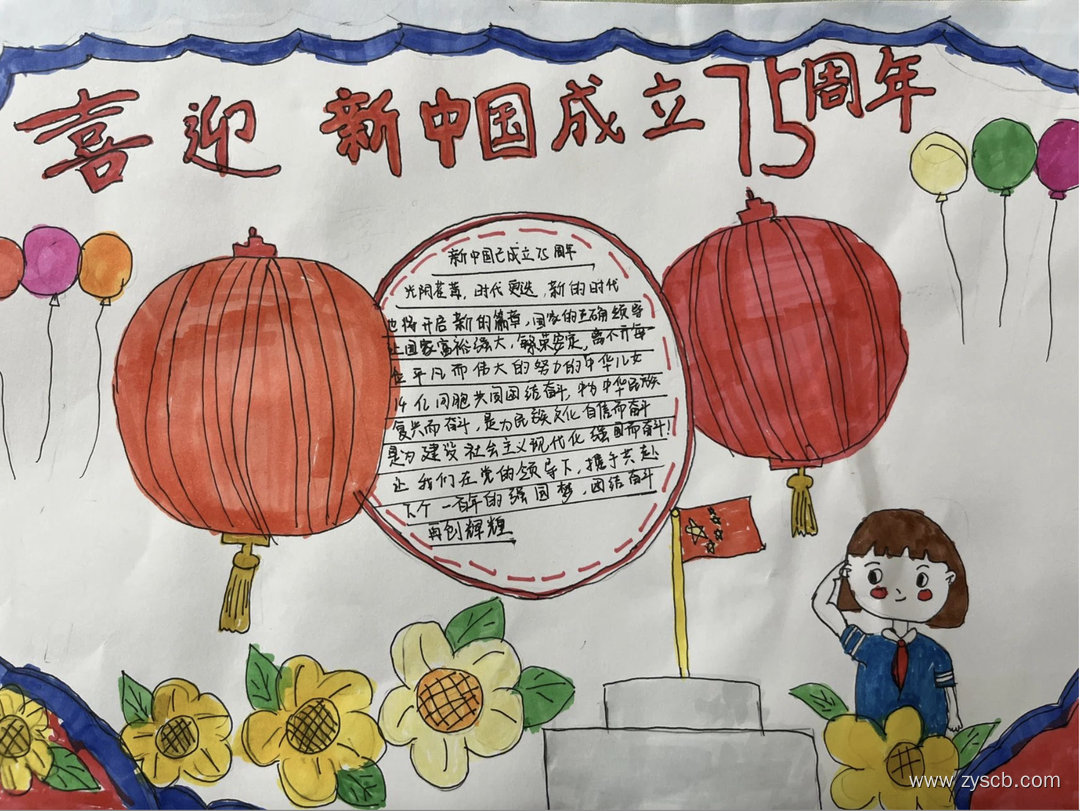 喜迎 新中国成立75周年
新中国已成立75周年
光阴荏苒,时代更迭,新的时代
也将开启新的篇章,国家的正确领导
让国家富裕强大,繁荣安定,离不开每
位平凡而伟大的努力的中华儿女
14亿同胞共同团结奋斗,为中华民族
复兴而奋斗,是为民族文化自信而奋斗
是为建设社会主义现代化强国而奋斗!
让我们在党的领导下,携手共赴
下个一百年的强国梦,团结奋斗
再创辉煌
www.zyscb.com